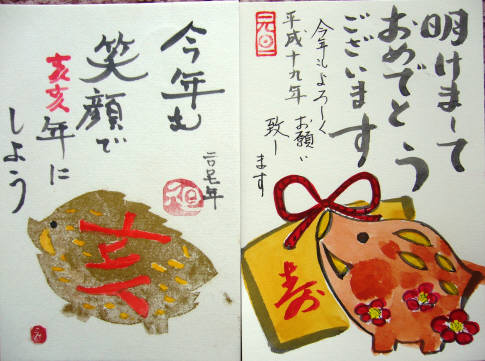 明けまして
おめでとう
ございます
今年もよろしく
お願い
致します
平成十九年
元旦
寿
今年も
笑顔で
亥亥年に
しよう
元旦